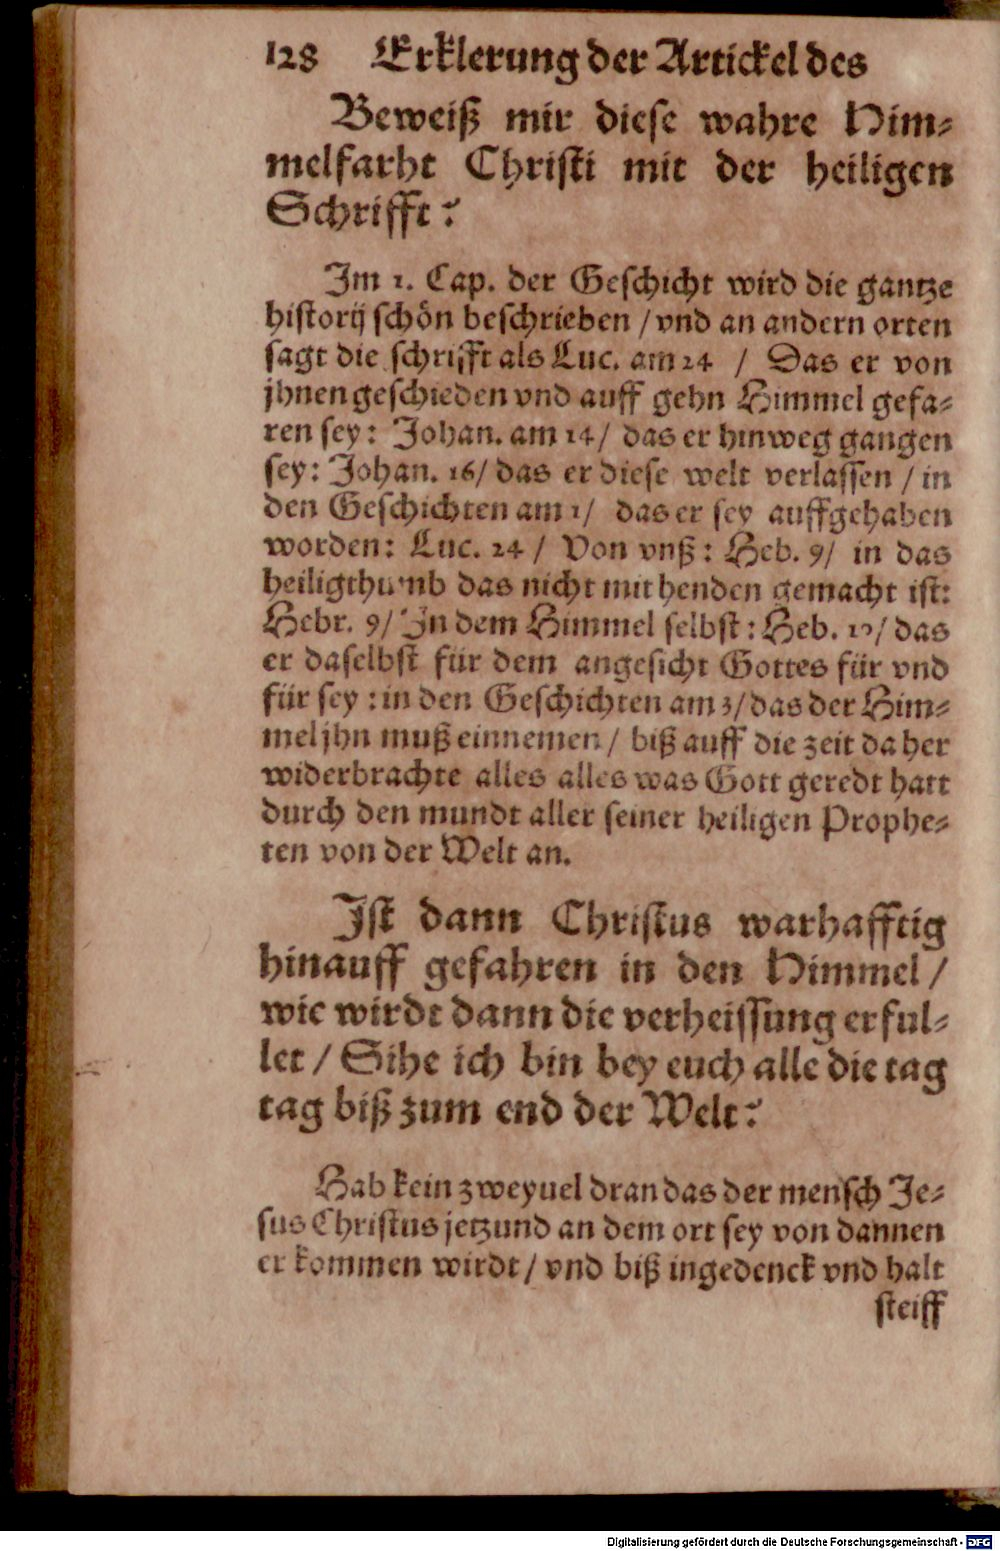 128 Erklerung der Artickel des
Beweiß mir diese wahre Him⸗
melfarht Christi mit der heiligen
Schrifft?
Im 1. Cap. der Geschicht wird die gantze
historij schön beschrieben / vnd an andern orten
sagt die schrifft als Luc. am 24 / Das er von
jhnen geschieden vnd auff gehn Himmel gefa⸗
ren sey: Johan. am 14/ das er hinweg gangen
sey: Johan. 16/ das er diese welt verlassen / in
den Geschichten am 1/ das er sey auffgehaben
worden: Luc. 24 / Von vnß: Heb. 9/ in das
heiligthumb das nicht mit henden gemacht ist:
Hebr. 9/ In dem Himmel selbst: Heb. / das
er daselbst für dem angesicht Gottes für vnd
für sey: in den Geschichten am 3/ das der Him⸗
mel jhn muß einnemen / biß auff die zeit da her
widerbrachte alles alles was Gott geredt hatt
durch den mundt aller seiner heiligen Prophe⸗
ten von der Welt an.
Ist dann Christus warhafftig
hinauff gefahren in den Himmel /
wie wirdt dann die verheissung erful⸗
let / Sihe ich bin bey euch alle die tag
tag biß zum end der Welt?
Hab kein zweyuel dran das der mensch Je⸗
sus Christus jetzund an dem ort sey von dannen
er kommen wirdt / vnd biß ingedenck vnd halt
steiff
Digitalisierung gefördert durch die Deutsche Forschungsgemeinschaft - DFG